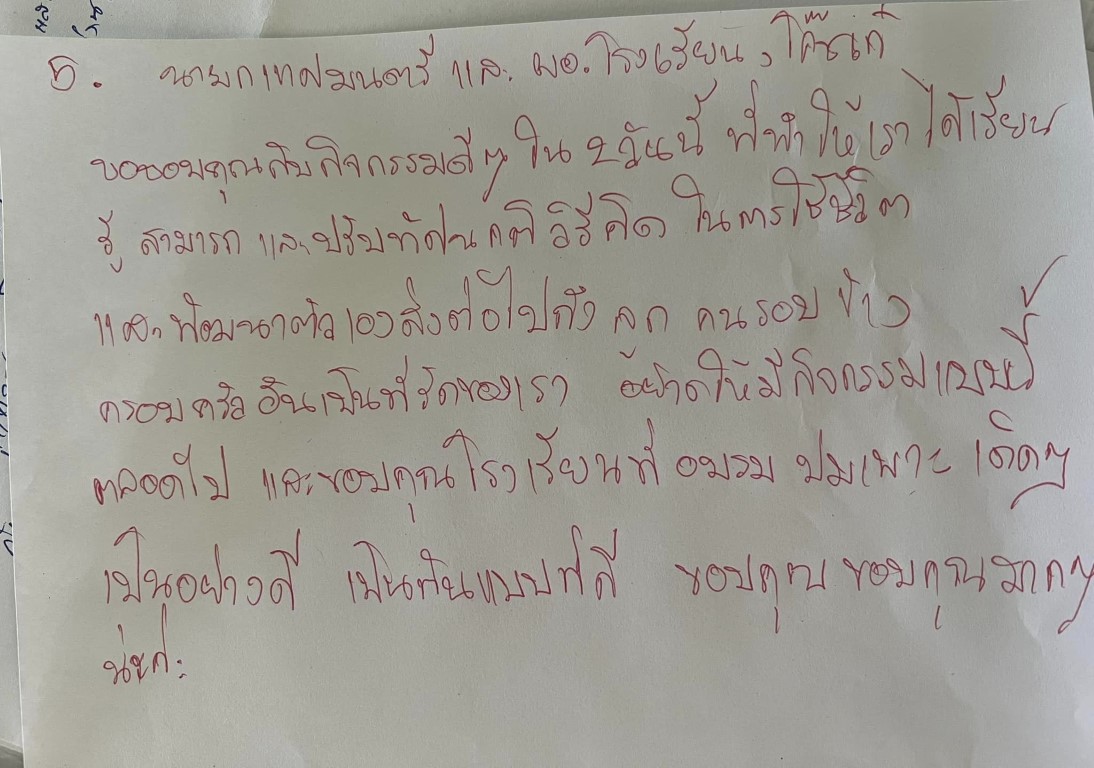 5. นายกเทศมนตรี และ ผอ.โรงเรียน, โค๊ชเก๋
ขอขอบคุณกับกิจกรรมดีๆ ใน 2 วันนี้ ที่ทำให้เราได้เรียน
รู้ สามารถ และปรับทัศนคติ วิธีคิด ในการใช้ชีวิต
และ พัฒนาตัวเองส่งต่อไปถึง ลูก คนรอบข้าง
ครอบครัว อันเป็นที่รักของเรา อยากให้มีกิจกรรมแบบนี้
ตลอดไป และขอบคุณโรงเรียนที่ อบรม บ่มเพาะ เด็กๆ
เป็นอย่างดี เป็นต้นแบบที่ดี ขอบคุณ ขอบคุณมากๆ
น่ะค่ะ